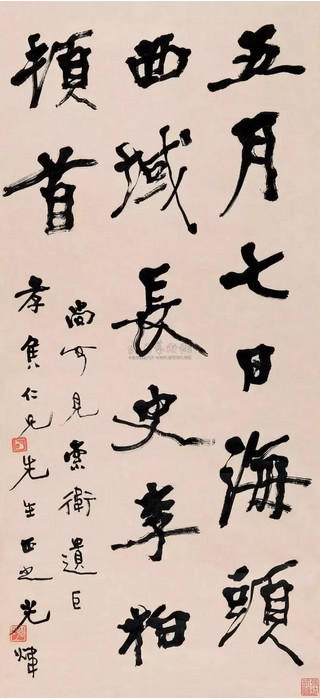 五月七日海頭
西域長史李柏
頓首
尚可見索衛遺巨
孝 仁兄先生正之光煒